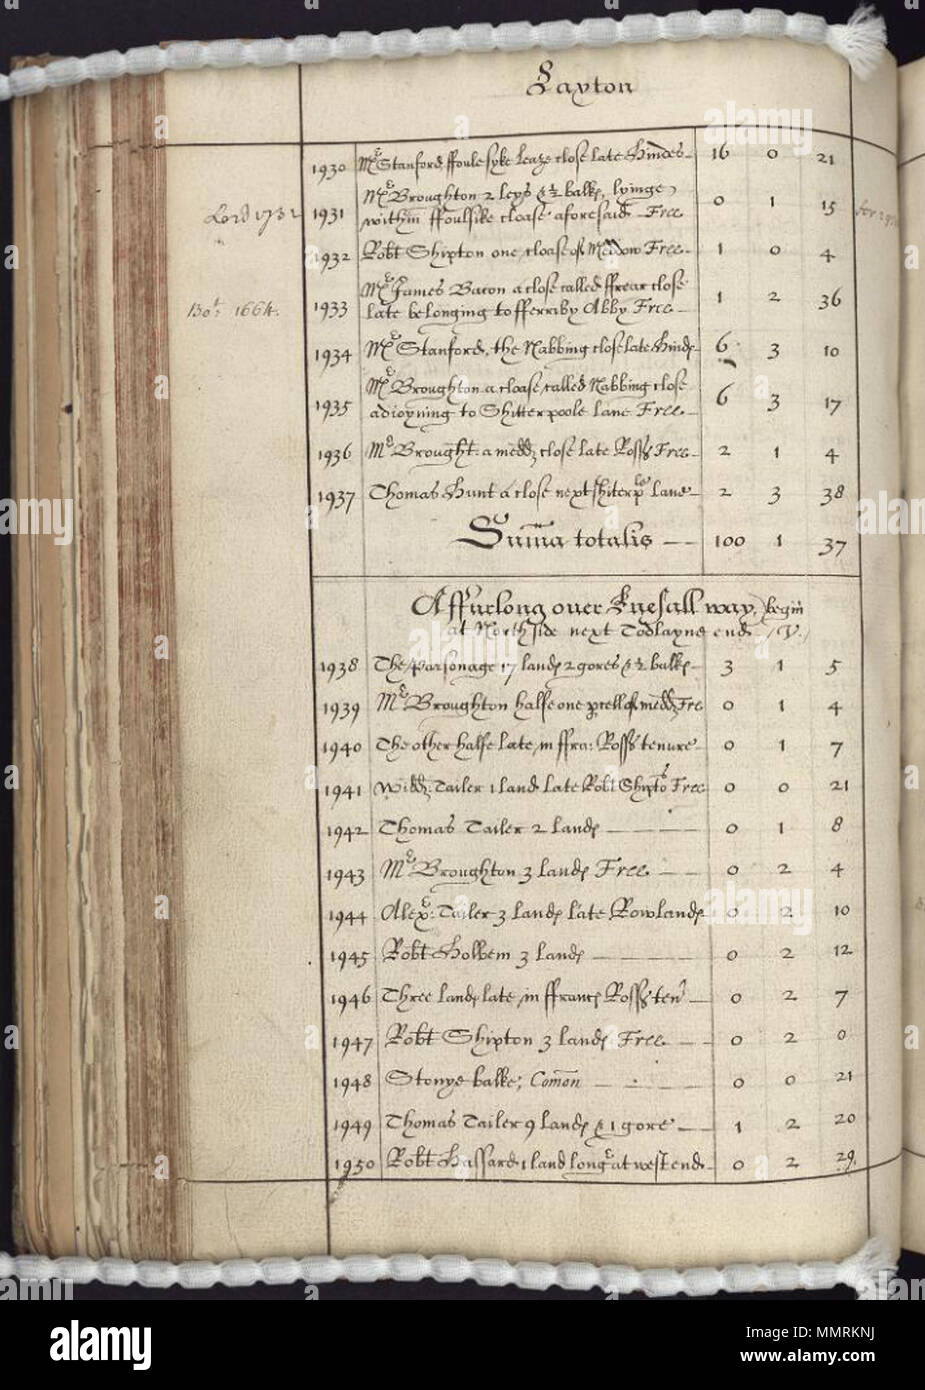 Laxton
1930 Mr Stanford ffoulesyke leaze close late Hindes 16 0 21
Lord 1732
1931 Mr Broughton 2 leys & ½ balk, lyinge
within ffoulsike cloase aforesaid Free 0 1 15
1932 Robt Shipton one cloase of Meadow Free 1 0 4
Bot: 1664.
1933 Mr James Bacon a close called ffrear close
late belonging to fferriby Abby Free 1 2 36
1934 Mr Stanford, the Nabbing close late Hind 6 3 10
1935 Mr Broughton a cloase called Nabbing close
adioyning to Shitterpoole Lane Free 6 3 17
1936 Mr Brought: a medd close late Ross Free 2 1 4
1937 Thomas Hunt a close next Shiterple lane 2 3 38
Summa totalis 100 1 37
A ffurlong ouer Knesall way, begin
at Northside next Todlayne end (V.)
1938 The Parsonage 17 land 2 gores & ½ balk 3 1 5
1939 Mr Broughton halfe one prcell of medd Fre 0 1 4
1940 The other halfe late, in ffra: Ross tenure 0 1 7
1941 Widd: Tailer 1 land late Robt Shipto's Free 0 0 21
1942 Thomas Tailer 2 land 0 1 8
1943 Mr Broughton 3 land Free 0 2 4
1944 Alexr: Tailer 3 land late Rowland 0 2 10
1945 Robt Holbem 3 land 0 2 12
1946 Three land late, in ffranc Ross ten 0 2 7
1947 Robt Shipton 3 land Free 0 2 0
1948 Stonye balke; Comon 0 0 21
1949 Thomas Tailer 9 land & 1 gore 1 2 20
1950 Robt Hassard 1 land longr at west end 0 2 29.
alamy
Image ID: MMRKNJ
www.alamy.com